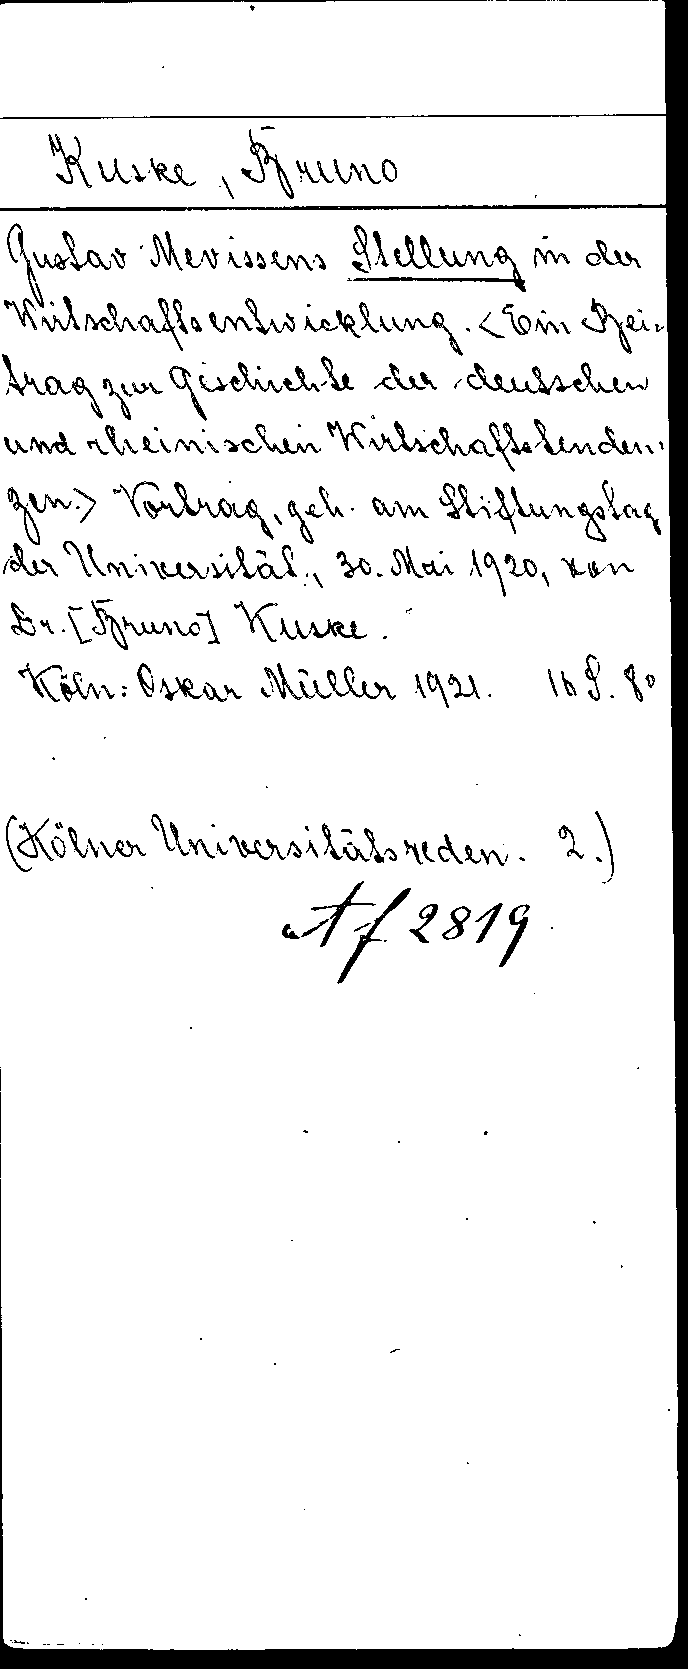 Kuske, Bruno
Gustav Mevissens Stellung in der
Wirtschaftsentwicklung. <Ein Bei-
trag zur Geschichte der deutschen
und rheinischen Wirtschaftstenden-
zen.> Vortrag, geh. am Stiftungstag
der Universität, 30. Mai 1920, von
Dr. [Bruno] Kuske.
Köln: Oskar Müller 1921. 16 S. 8°
(Kölner Universitätsreden. 2.)
Af 2819